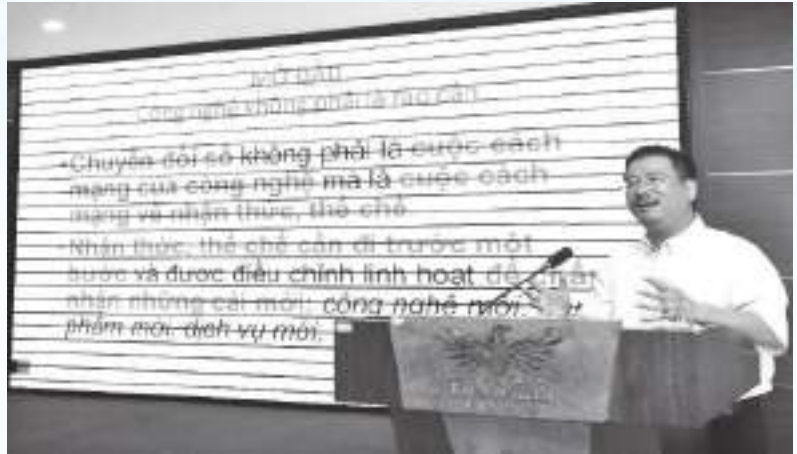 MỞ ĐẦU
Công nghệ không phải là rào cản
•Chuyển đổi số không phải là cuộc cách
mạng của công nghệ mà là cuộc cách
mạng về nhận thức, thể chế
•Nhận thức, thể chế cần đi trước một
bước và được điều chỉnh linh hoạt để chấp
nhận những cái mới: công nghệ mới,
phẩm mới, dịch vụ mới.